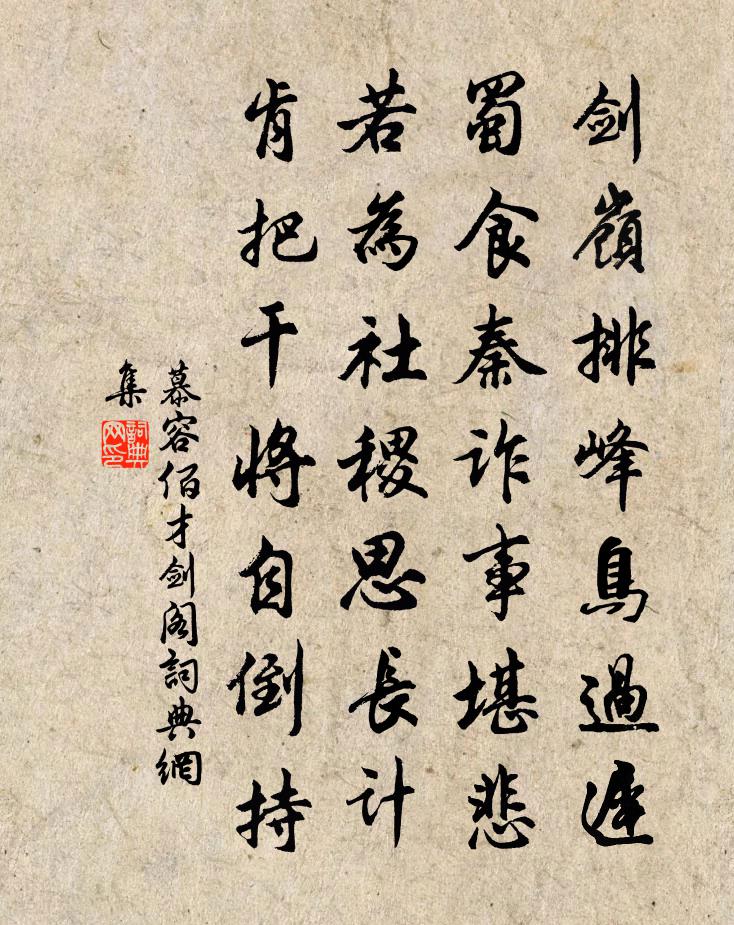 剑嶺排峰鳥過遲
蜀食秦詐事堪悲
若為社稷思長計
肯把干將自倒持
慕容佰才剑阁詞典網
集
詞典
网印